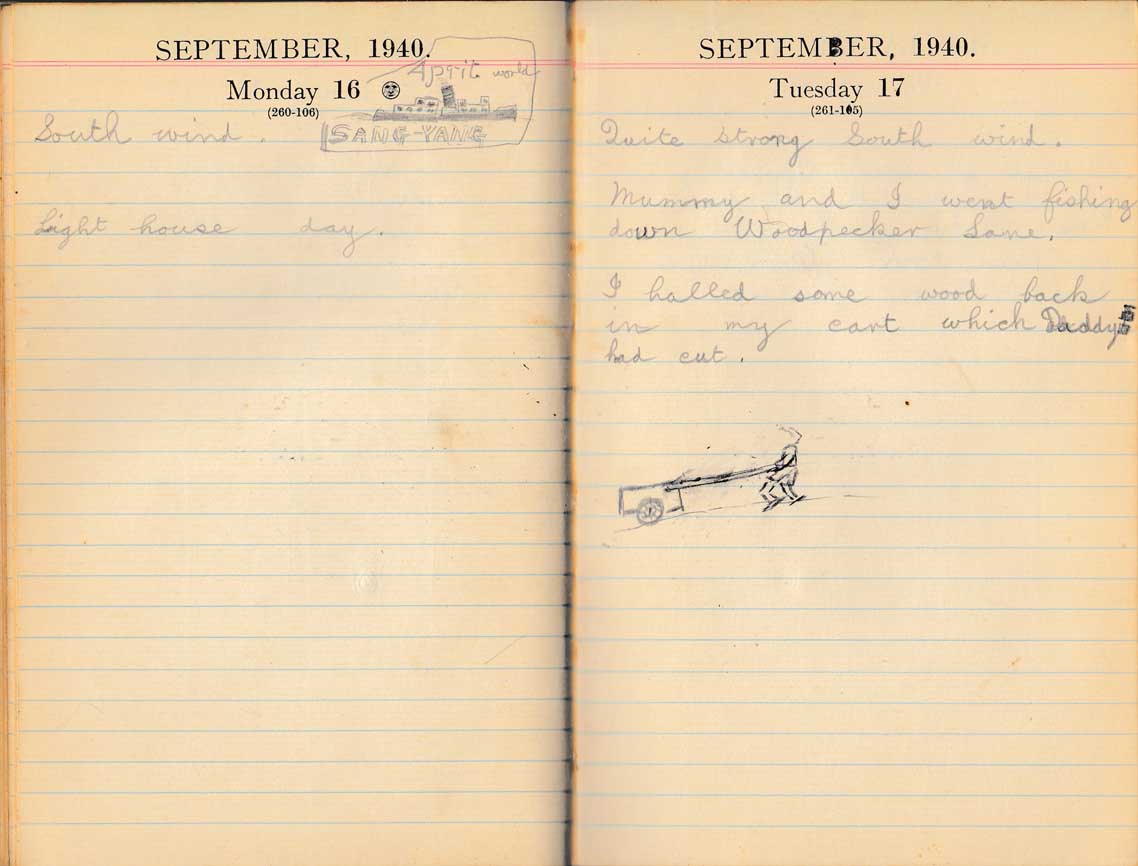 SEPTEMBER, 1940.
Monday 16
(260-106)
world
SANG-YANG
South wind.
Light house day.
SEPTEMBER, 1940.
Tuesday 17
(261-105)
Quite strong South wind.
Mummy and I went fishing
down Woodpecker Lane.
I halled some wood back
in my cart which Daddy
had cut.